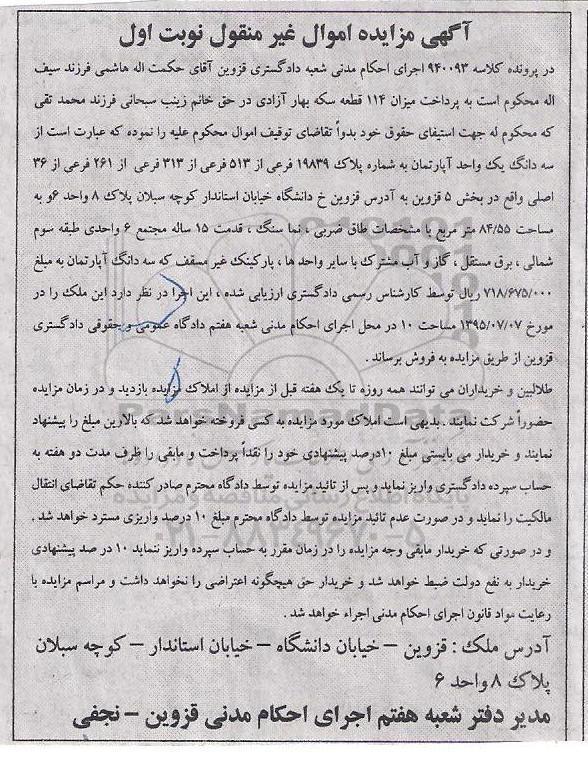 آگهی مزایده اموال غیر منقول نوبت اول
در پرونده کلاسه ۹۴۰۰۹۳ اجرای احکام مدنی شعبه دادگستری قزوین آقای حکمت اله هاشمی فرزند سیف
اله محکوم است به پرداخت میزان ۱۱۴ قطعه سکه بهار آزادی در حق خانم زینب سبحانی فرزند محمد تقی
که محکوم له جهت استیفای حقوق خود بدواً تقاضای توقیف اموال محکوم علیه را نموده که عبارت است از
سه دانگ یک واحد آپارتمان به شماره پلاک ۱۹۸۳۹ فرعی از ۵۱۳ فرعی از ۳۱۳ فرعی از ۲۶۱ فرعی از ۳۶
اصلی واقع در بخش ۵ قزوین به آدرس قزوین خ دانشگاه خیابان استاندار کوچه سبلان پلاک ۸ واحد ۶و به
مساحت ۸۴/۵۵ متر مربع با مشخصات طاق ضربی ، نما سنگ ، قدمت ۱۵ ساله مجتمع ۶ واحدی طبقه سوم
شمالی ، برق مستقل ، گاز و آب مشترک با سایر واحد ها ، پارکینک غیر مسقف که سه دانگ آپارتمان به مبلغ
۷۱۸/۶۷۵/۰۰۰ ریال توسط کارشناس رسمی دادگستری ارزیابی شده ، این اجرا در نظر دارد این ملک را در
مورخ ۱۳۹۵/۰۷/۰۷ مساحت ۱۰ در محل اجرای احکام مدنی شعبه هفتم دادگاه عمومی و حقوقی دادگستری
قزوین از طریق مزایده به فروش برساند .
طلالبین و خریداران می توانند همه روزه تا یک هفته قبل از مزایده از املاک مزایده بازدید و در زمان مزایده
حضوراً شرکت نمایند . بدیهی است املاک مورد مزایده به کسی فروخته خواهد شد که بالارین مبلغ را پیشنهاد
نمایند و خریدار می بایستی مبلغ ۱۰درصد پیشنهادی خود را نقداً پرداخت و مابقی را ظرف مدت دو هفته به
حساب سپرده دادگستری واریز نماید و پس از تائید مزایده توسط دادگاه محترم صادر کننده حکم تقاضای انتقال
مالکیت را نماید و در صورت عدم تائید مزایده توسط دادگاه محترم مبلغ ۱۰ درصد واریزی مسترد خواهد شد .
و در صورتی که خریدار مابقی وجه مزایده را در زمان مقرر به حساب سپرده واریز ننماید ۱۰ در صد پیشنهادی
خریدار به نفع دولت ضبط خواهد شد و خریدار حق هیچگونه اعتراضی را نخواهد داشت و مراسم مزایده با
رعایت مواد قانون اجرای احکام مدنی اجراء خواهد شد .
آدرس ملک : قزوین – خیابان دانشگاه – خیابان استاندار – کوچه سبلان
پلاک ۸ واحد ۶
مدیر دفتر شعبه هفتم اجرای احکام مدنی قزوین – نجفی
ParsNamadData
۰۲۱-۸۸۳۴۹۶۷۰-۵